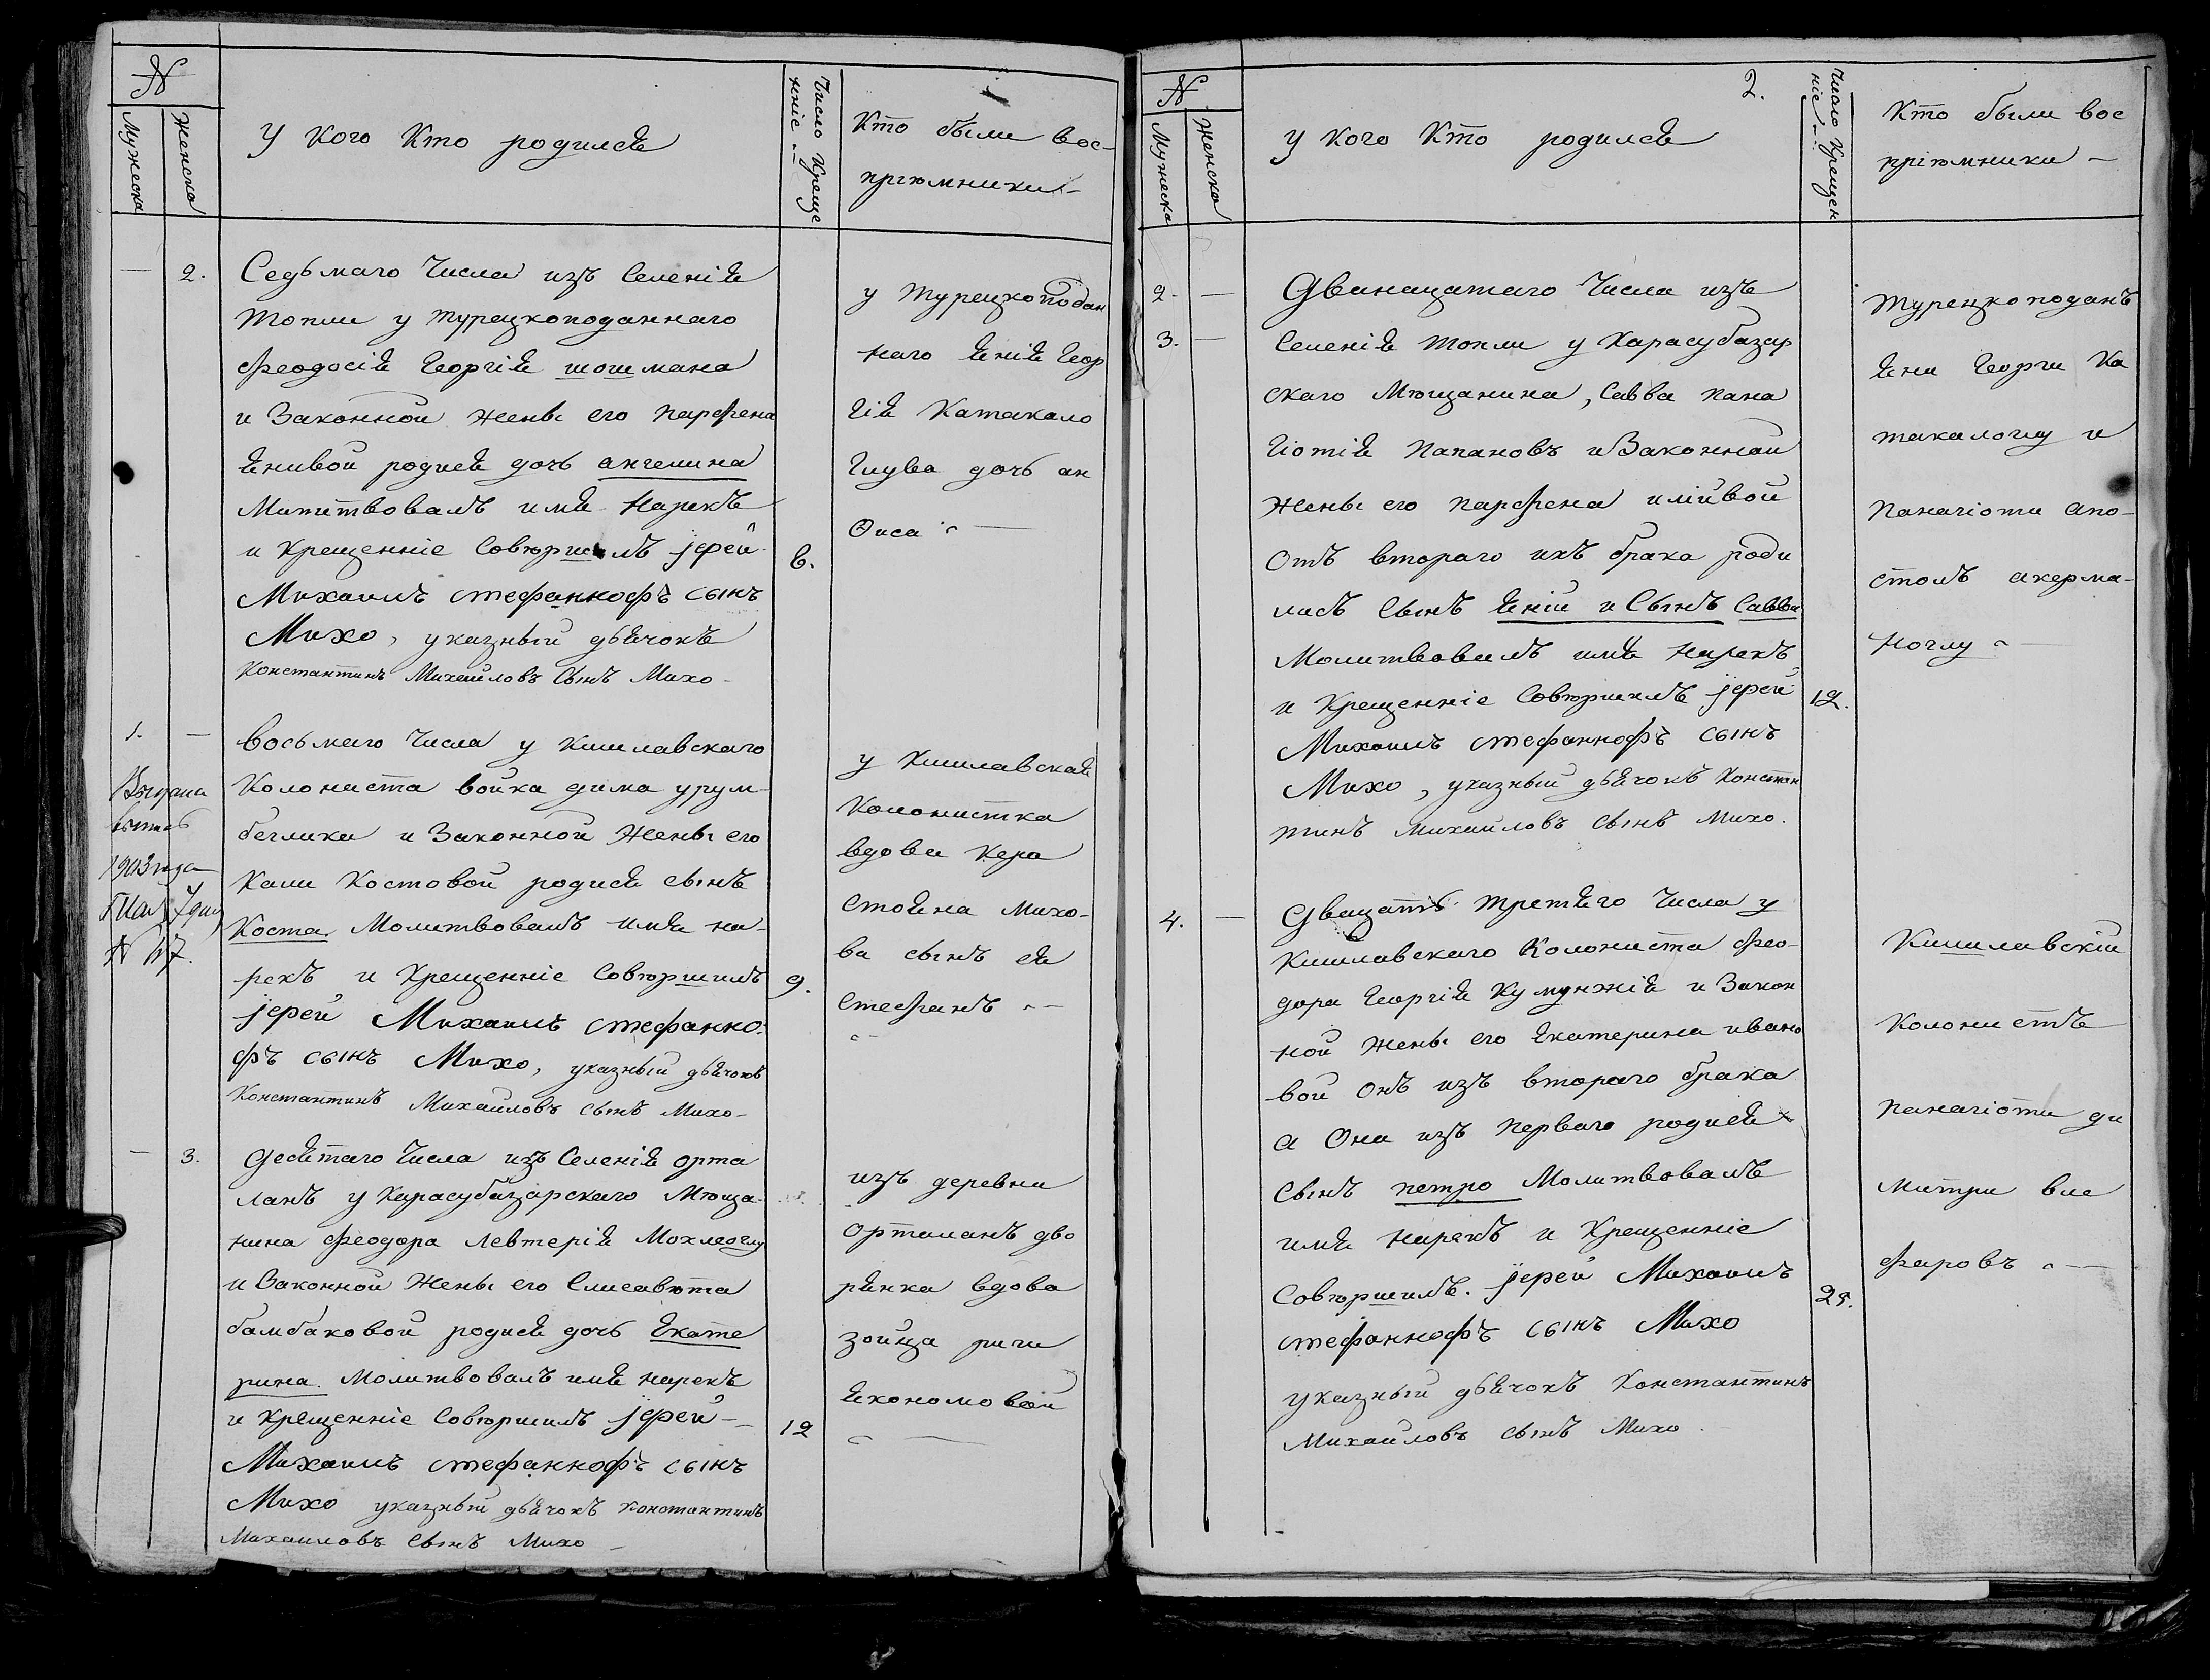 №
Мужеска
Женска
У кого Кто родилсѧ
Число Креще
нніе
Кто были вос-
пріюмники
—
2.
Седьмаго Числа изъ Селеніѧ
Топли у турецкоподаннаго
Феодосіѧ Георгіѧ шошмана
и Законной жены его парфена
ѧнивой родисѧ дочь ангелина
Мититвовалъ имѧ Нарекъ
и Крещенніе Совюршилъ јерей
Михаилъ стефанкофъ сынъ
Михо, указный дьѧчокъ
Константинъ Михайловъ Сынъ Михо-
8.
у Турецкоподан
наго ѧніѧ Геор
гіѧ Катакало
Глува дочь ан
Ѳиса
1.
—
восьмаго Числа у Кишлавскаго
Колониста войка дима урум-
беглики и Законной Жены его
Кали Костовой родисѧ сынъ
Коста Молитвовалъ имѧ на-
рекъ и Крещенніе Совюршилъ
јерей Михаилъ стефанко-
фъ сынъ Михо, указный дьѧчокъ
Константинъ Михайловъ сынъ Михо-
9.
1903 года
7 дня
у Кишлавскаѧ
Колонистка
вдова Кера
Стоѧна Михо-
ва сынъ еѧ
Стефанъ
—
3.
Десѧтаго Числа изъ Селеніѧ орта
ланъ у Карасубазарскаго Мюща-
нина Феодора Левтеріѧ Мохлеоглу
и Законной Жены его Елисавюта
бамбаковой родисѧ дочь Екате
рина. Молитвовалъ имѧ нарекъ
и Крещенніе Совюршилъ јерей —
Михаилъ стефанкофъ сынъ
Михо указный дьѧчокъ Константинъ
Михаиловъ Сынъ Михо —
12
изъ деревни
Орталанъ дво
рѧнка вдова
зоица риги
ѧкономовой
№
Мужеска
Женска
2.
У кого Кто родилсѧ
Число Крещен
ніе
Кто были вос
пріюмники —
2. —
3. —
Дванацатаго Числа изъ
Селеніѧ топли у Карасубазар
скаго Мющанина, Савва пана
гіотіѧ Папановъ и Законной
жены его парфена илійвой
Отъ втораго ихъ брака роди
лисъ Сынъ ѧній и Сынъ Савва
Молитвовалъ имѧ Нарекъ
и Крещенніе Совюршилъ јерей
Михаилъ стефанкофъ сынъ
Михо, указный дьѧчокъ Констан
тинъ Михаиловъ сынъ Михо.
12.
турецкоподанъ
ѧни Георги Ка
такалоглу и
Панагіоти апо-
столъ акерма-
ноглу
4. —
Двацать третѧго Числа у
Кишлавскаго Колониста Фео-
дора Георгіѧ Кумунжіѧ и Закон
ной Жены его Екатерина ивано
вой Онъ изъ втораго брака
а Она изъ перваго родисѧ
Сынъ петро Молитвовалъ
имѧ нарекъ и Крещенніе
Совюршилъ. јерей Михаилъ
стефанкофъ сынъ Михо
указный дьѧчокъ Константинъ
Михаиловъ сынъ Михо.
25.
Кишлавскій
Колонистъ
Панагіоти ди
митри вле
фаровъ